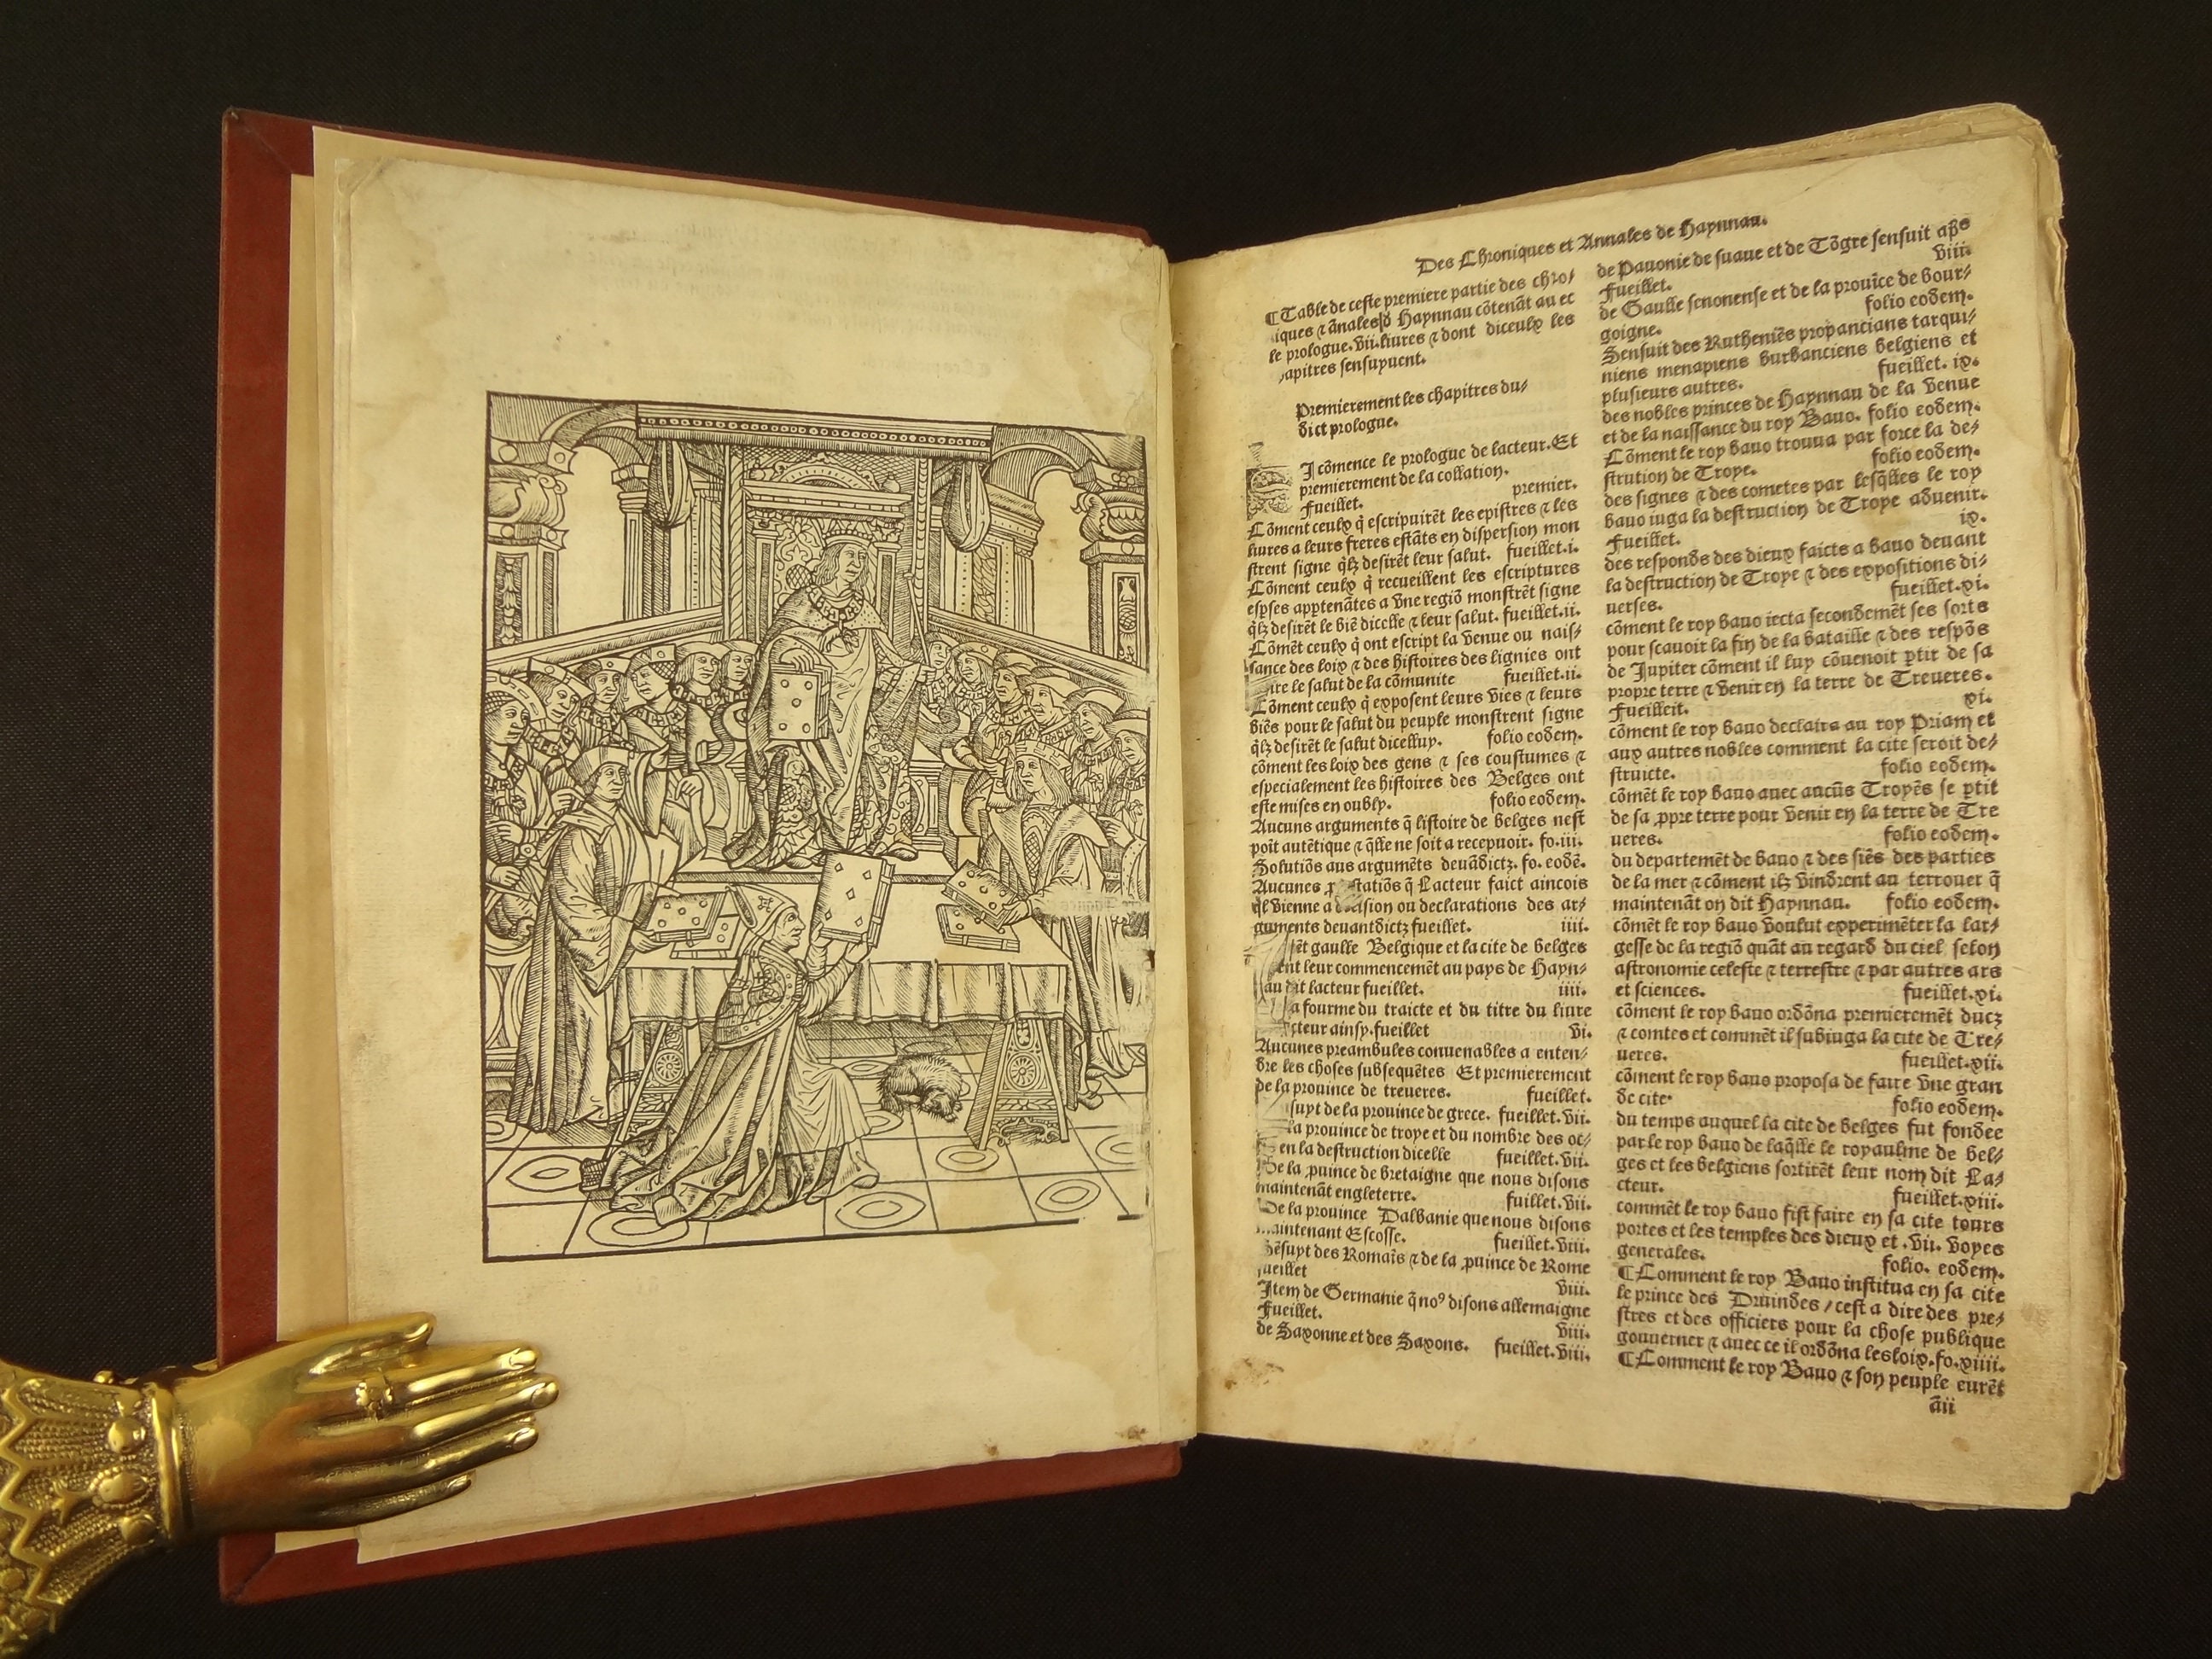 Des Chroniques et Annales de Haynnau.
¶Table de ceste premiere partie des chro/
iques ⁊ ānales d Haynnau cōtenāt au ec
le prologue.vii.liures ⁊ dont diceulx les
apitres sensuyuent.
Premierement les chapitres du/
dict prologue.
I cōmence le prologue de lacteur.Et
premierement de la collation.
Fueillet. premier.
Cōment ceulx q̄ escripuirēt les epistres ⁊ les
liures a leurs freres estāts en dispersion mon
strent signe q̄lz desirēt leur salut. fueillet.i.
Cōment ceulx q̄ recueillent les escriptures
espses apptenātes a vne regiō monstrēt signe
q̄lz desirēt le biē dicelle ⁊ leur salut. fueillet.ii.
Cōmēt ceulx q̄ ont escript la venue ou nais/
sance des loix ⁊ des histoires des lignies ont
ire le salut de la cōmunite fueillet.ii.
Cōment ceulx q̄ exposent leurs vies ⁊ leurs
biēs pour le salut du peuple monstrent signe
q̄lz desirēt le salut dicelluy. folio eodem.
cōment les loix des gens ⁊ ses coustumes ⁊
especialement les histoires des Belges ont
este mises en oubly. folio eodem.
Aucuns arguments q̄ listoire de belges nest
poīt autētique ⁊ q̄lle ne soit a recepuoir. fo.iii.
Solutiōs aus argumēts deuādictz. fo. eodē.
Aucunes statiōs q̄ Lacteur faict aincois
ql vienne a sion ou declarations des ar/
guments deuantdictz fueillet. iiii.
ēt gaulle Belgique et la cite de belges
ent leur commencemēt au pays de Hayn/
au dit lacteur fueillet. iiii.
a fourme du traicte et du titre du liure
cteur ainsy.fueillet vi.
Aucunes preambules conuenables a enten/
dre les choses subsequētes Et premierement
de la prouince de treueres. fueillet.
suyt de la prouince de grece. fueillet.vii.
la prouince de troye et du nombre des oc/
en la destruction dicelle fueillet.vii.
De la puince de bretaigne que nous disons
maintenāt engleterre. fuillet.vii.
De la prouince Dalbanie que nous disons
maintenant Escosse. fueillet.viii.
Sēsuyt des Romaīs ⁊ de la puince de Rome
fueillet viii.
Item de Germanie q̄ noꝰ disons allemaigne
Fueillet. viii.
de Saxonne et des Saxons. fueillet.viii.
de Pauonie de suaue et de Tōgre sensuit aps
Fueillet. viii.
de Gaulle senonense et de la prouīce de bour/
goigne. folio eodem.
Sensuit des Rutheniēs propantians tarqui/
niens menapiens burbanciens belgiens et
plusieurs autres. fueillet. ix.
des nobles princes de Haynnau de la venue
et de la naissance du roy Bauo. folio eodem.
Cōment le roy bauo trouua par force la de/
struction de Troye. folio eodem.
des signes ⁊ des cometes par lesq̄lles le roy
bauo iuga la destruction de Troye aduenir.
Fueillet. ix.
des responds des dieux faicts a bauo deuant
la destruction de Troye ⁊ des expositions di/
uerses. fueillet.xi.
cōment le roy bauo iecta secondemēt ses sorts
pour scauoir la fin de la bataille ⁊ des respōs
de Jupiter cōment il luy cōuenoit ptir de sa
propre terre ⁊ venir en la terre de Treueres.
Fueilleit. xi.
cōment le roy bauo declaira au roy Priam et
aux autres nobles comment la cite seroit de/
structe. folio eodem.
cōmēt le roy bauo auec aucūs Troyēs se ptit
de sa ppre terre pour venir en la terre de Tre
ueres. folio eodem.
du departemēt de bauo ⁊ des siēs des parties
de la mer ⁊ cōment ilz vindrent au terrouer q̄
maintenāt on dit Haynnau. folio eodem.
cōmēt le roy bauo voulut experimēter la lar/
gesse de la regiō quāt au regard du ciel selon
astronomie celeste ⁊ terrestre ⁊ par autres ars
et sciences. fueillet.xi.
cōment le roy bauo ordōna premieremēt ducz
⁊ comtes et commēt il subiuga la cite de Tre/
ueres. fueillet.xii.
cōment le roy bauo proposa de faire vne gran
de cite. folio eodem.
du temps auquel la cite de belges fut fondee
par le roy bauo de laq̄lle le royaulme de bel/
ges et les belgiens sortirēt leur nom dit La/
cteur. fueillet.xiii.
commēt le roy bauo fist faire en sa cite tours
portes et les temples des dieux et .vii. voyes
generales. folio. eodem.
¶Comment le roy Bauo institua en sa cite
le prince des Druindes / cest a dire des pre/
stres et des officiers pour la chose publique
gouuerner ⁊ auec ce il ordōna les loix.fo.xiiii.
¶Comment le roy Bauo ⁊ son peuple eurēt
aii